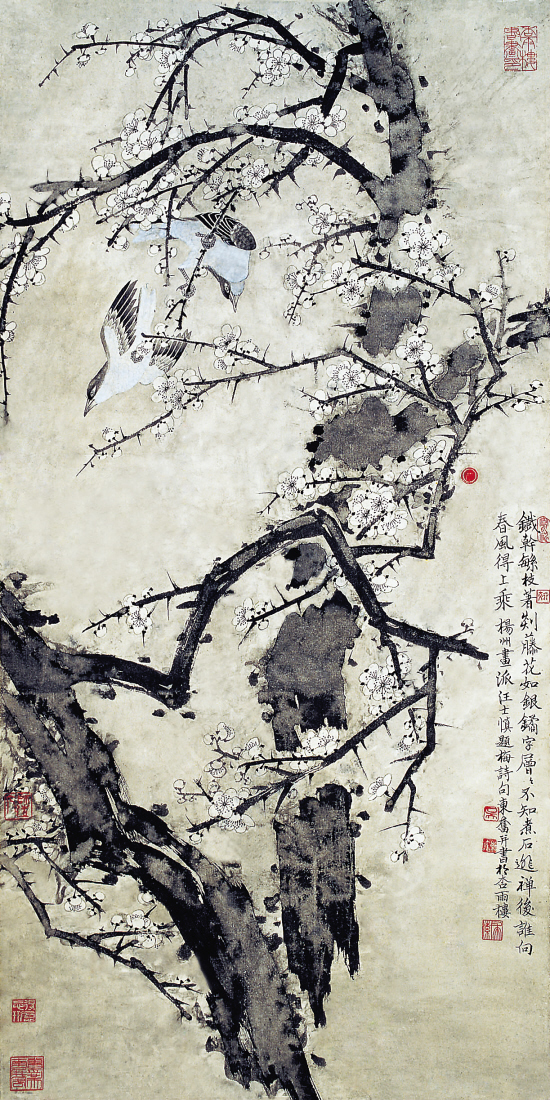 鐵幹繁枝著剡藤花如銀鐍字層〻不知煮石逃禪後誰向
春風得上乘 楊州畫派汪士慎題梅詩句東奮并書於杏雨樓